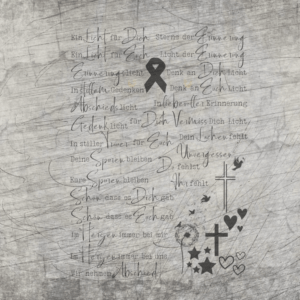 Ein Licht für Dich Sterne der Erinnerung
Ein Licht für Euch Licht der Erinnerung
Erinnerungslicht Denk an Dich Licht
In stillem Gedenken Denk an Euch Licht
Abschiedslicht In liebevoller Erinnerung
Gedenklicht für Dich Vermiss dich Licht
In stiller für Euch Dein Lachen fehlt
Deine Spuren bleiben Unvergessen
Du fehlst
Eure Spuren bleiben Ihr fehlt
Schön dass es Dich gab
Schön dass es Euch gab
Im Herzen immer bei mir
Im Herzen immer bei uns
Wir nehmen Abschied